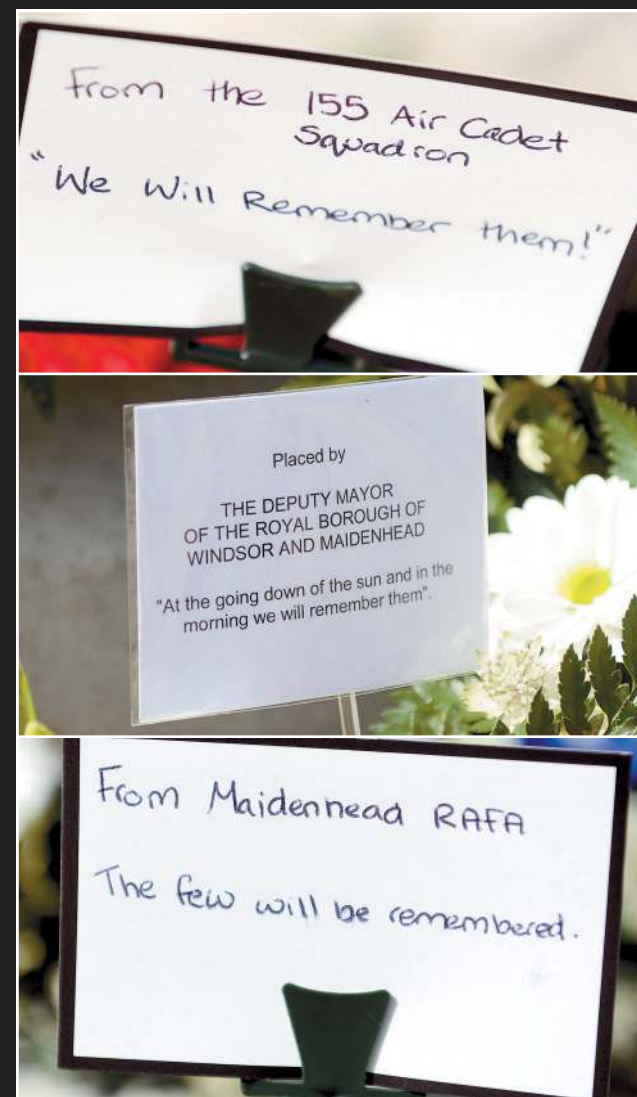 From the 155 Air Cadet
Squadron
"We Will Remember them!"
Placed by
THE DEPUTY MAYOR
OF THE ROYAL BOROUGH OF
WINDSOR AND MAIDENHEAD
"At the going down of the sun and in the
morning we will remember them".
From Maidenhead RAFA
The few will be remembered.